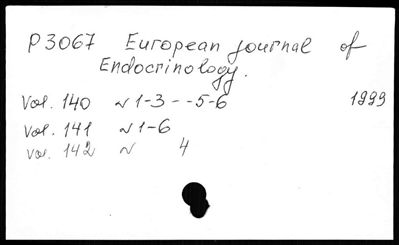 P3067 European journal of
Endocrinology.
Vol. 140 N 1-3 - -5-6 1999
Vol. 141 N 1-6
Vol. 142 N 4